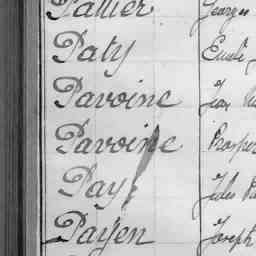 Pallier Georges
Paty Emile
Pavoine Jean
Pavoine Prosper
Pay Jules
Payen Joseph